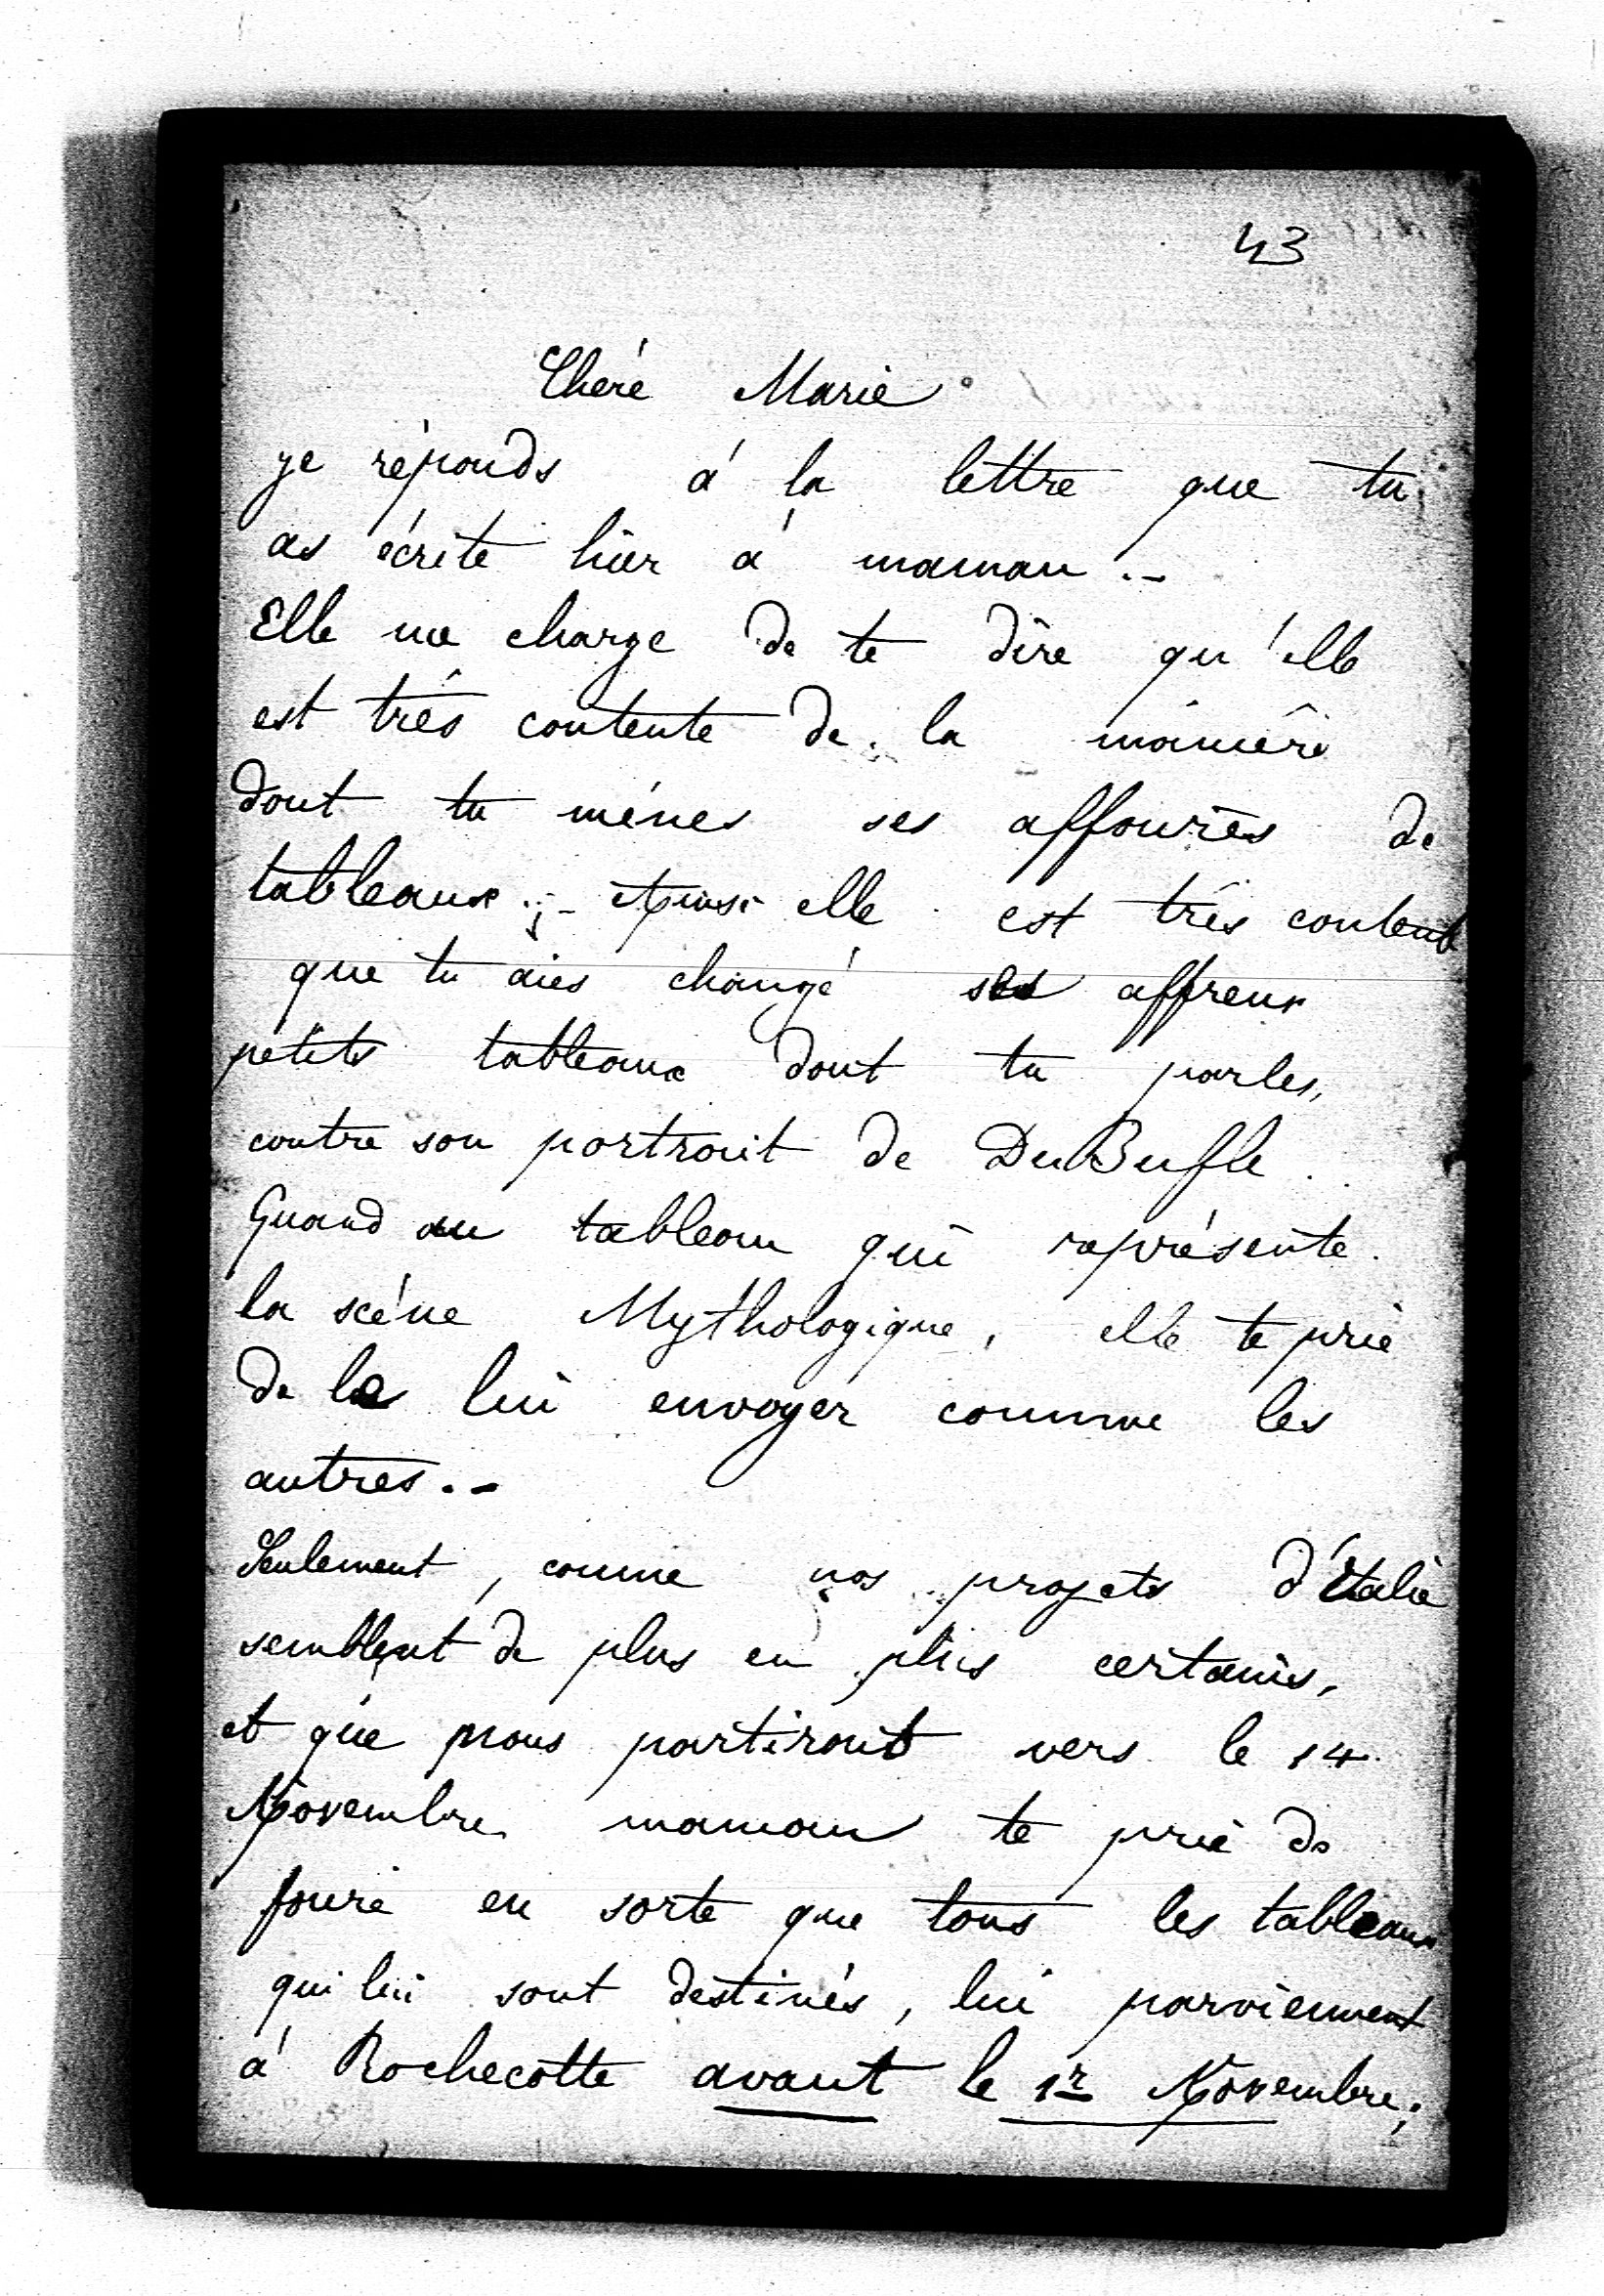 43
Chère Marie
je réponds à la lettre que tu
as écrite hier à maman.-
Elle me charge de te dire qu'elle
est très contente de la manière
dont tu mènes ses affaires de
tableaux ;- Ainsi elle est très contente
que tu aies changé ses affreux
petits tableaux dont tu parles,
contre son portrait de DuBufle.
Quand au tableau qui représente
la scène Mythologique, elle te prie
de le lui envoyer comme les
autres.-
Seulement, comme nos projets d'Italie
semblent de plus en plus certains,
et que nous partirons vers le 14
Novembre maman te prie de
faire en sorte que tous les tableaux
qui lui sont destinés, lui parviennent
à Rochecotte avant le 1r Novembre;